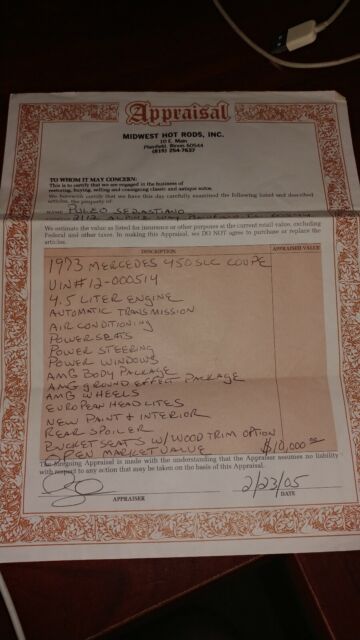 Appraisal
MIDWEST HOT RODS, INC.
10 E. Main
Plainfield, Illinois 60544
(815) 254-7637
TO WHOM IT MAY CONCERN:
This is to certify that we are engaged in the business of
restoring, buying, selling and consigning classic and antique autos.
We herewith certify that we have this day carefully examined the following listed and described
articles, the property of:
NAME PULEO SEBASTIANO
We estimate the value as listed for insurance or other purposes at the current retail value, excluding
Federal and other taxes. In making this Appraisal, we DO NOT agree to purchase or replace the
articles.
DESCRIPTION APPRAISED VALUE
1973 MERCEDES 450SLC COUPE
VIN#12-000514
4.5 LITER ENGINE
AUTOMATIC TRANSMISSION
AIR CONDITIONING
POWER SEATS
POWER STEERING
POWER WINDOWS
AMG BODY PACKAGE
AMG GROUND EFFECT PACKAGE
AMG WHEELS
EUROPEAN HEADLITES
NEW PAINT & INTERIOR
REAR SPOILER
BUCKET SEATS W/WOOD TRIM OPTION
OPEN MARKET VALUE $10,000
The foregoing Appraisal is made with the understanding that the Appraiser assumes no liability
with respect to any action that may be taken on the basis of this Appraisal.
2/23/05
APPRAISER DATE